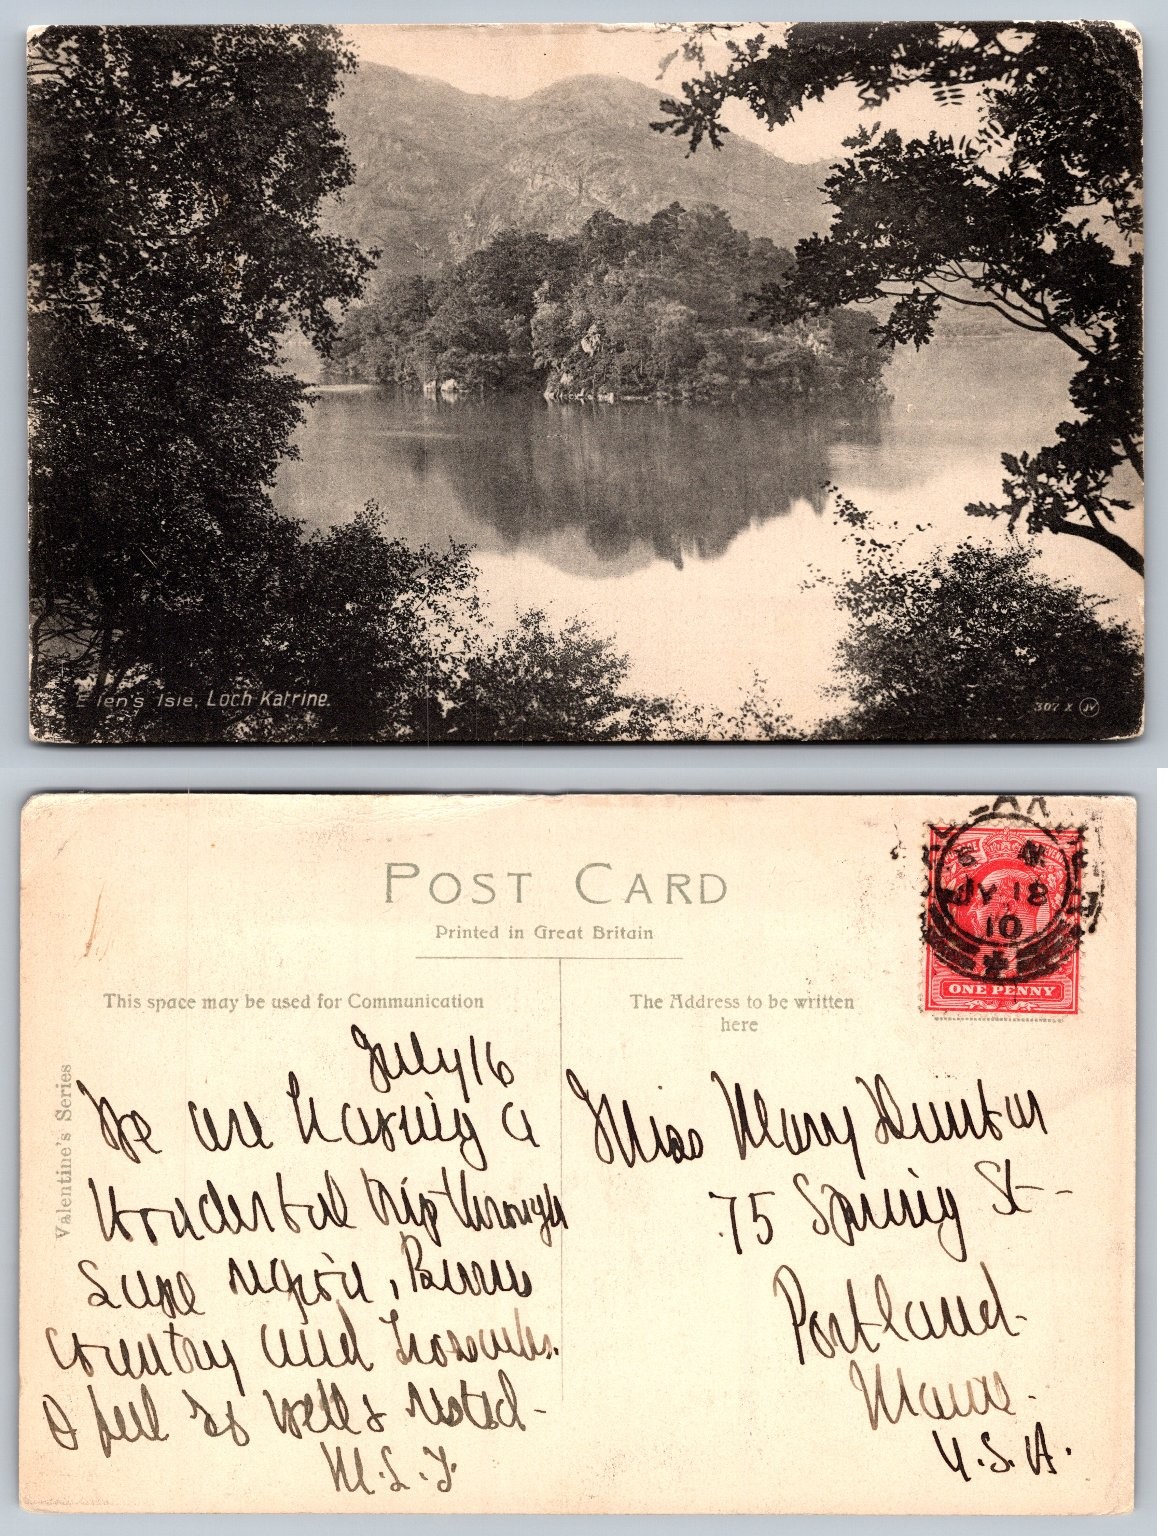 Ellen's Isle, Loch Katrine.
307 X JV
POST CARD
Printed in Great Britain
This space may be used for Communication
The Address to be written
here
JY 18
10
ONE PENNY
Valentine's Series
July 16
We are having a
wonderful trip through
Lake region, Burns
country and Trossachs.
I feel so well & rested -
M.L.F.
Miss Mary Dunbar
75 Spring St -
Portland -
Maine -
U.S.A.